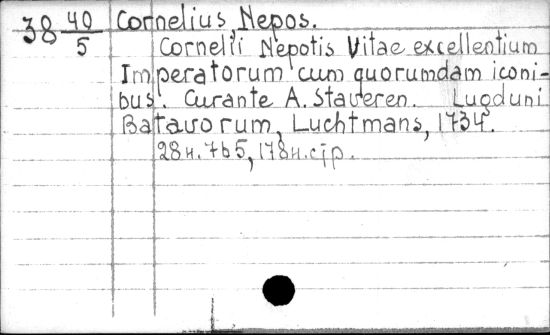 38 40/5 Cornelius, Nepos.
Cornelii Nepotis Vitae excellentium
Imperatorum cum quorumdam iconi-
bus. Curante A. Staveren. Lugduni
Batavorum, Luchtmans, 1734.
28н.765, 178н.стр.